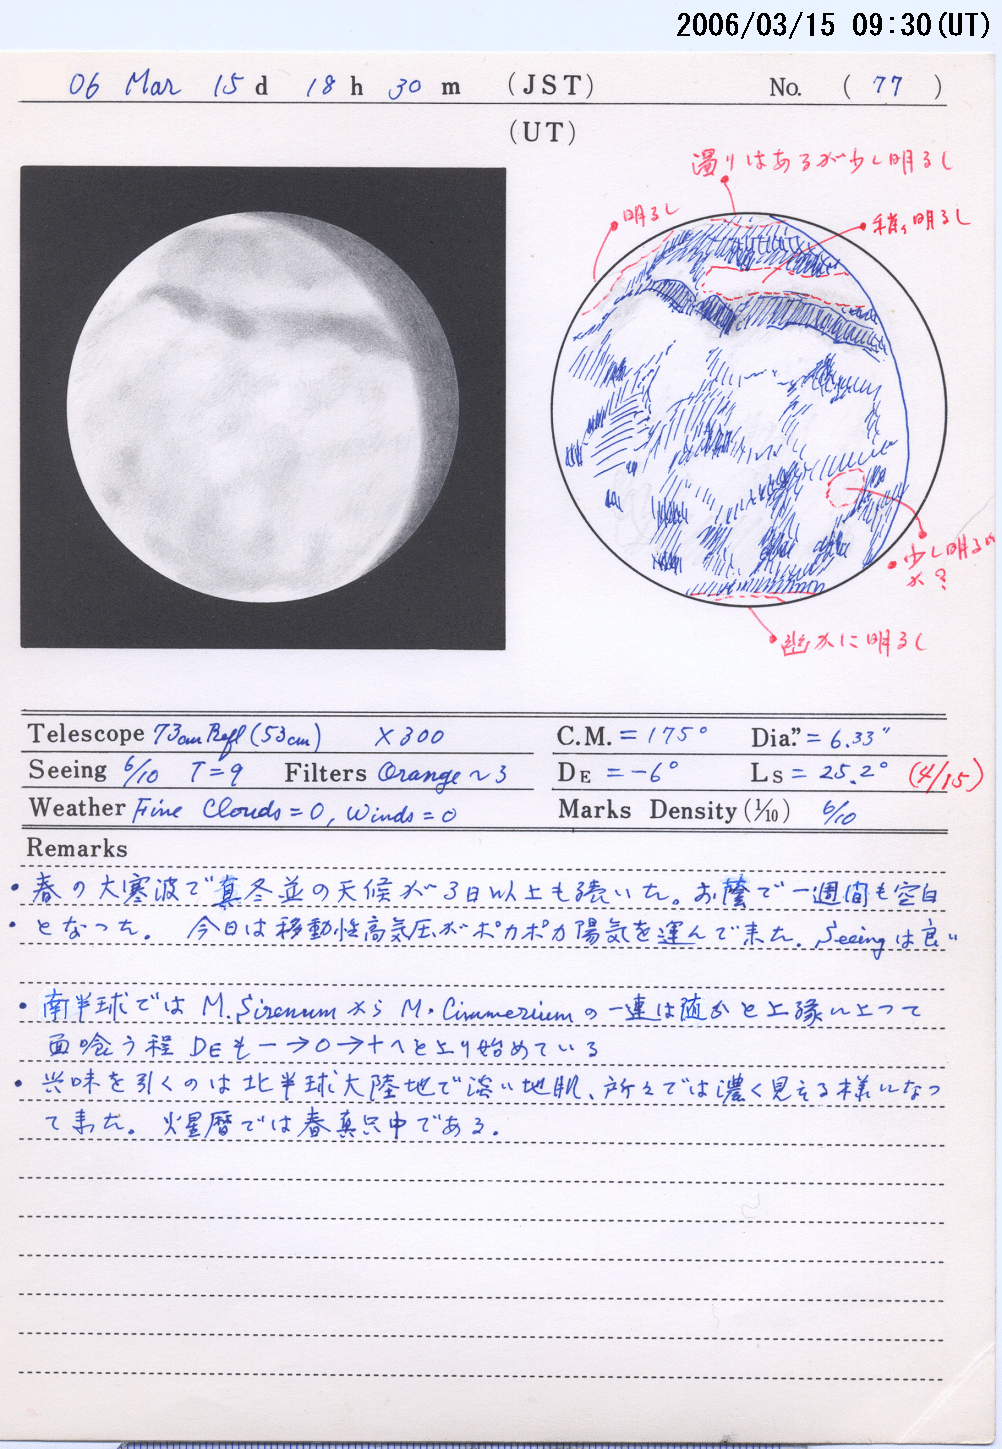 2006/03/15 09:30(UT)
06 Mar 15 d 18 h 30 m (JST) No. ( 77 )
(UT)
濁りはあるが少し明るし
明るし
稍々明るし
少し明るい
か?
幽かに明るし
Telescope 73cm Refl (53cm) ×300 C.M. = 175° Dia." = 6.33"
Seeing 6/10 T=9 Filters Orange ~ 3 DE = -6° Ls = 25.2° (4/15)
Weather Fine Clouds=0, Winds=0 Marks Density (1/10) 6/10
Remarks
• 春の大寒波で真冬並の天候が3日以上も続いた。お蔭で一週間も空白
• となった。 今日は移動性高気圧がポカポカ陽気を運んで来た. Seeingは良い
• 南半球では M.Sirenumから M.Cimmeriumの一連は随分と上縁に上って
面喰う程 DEも−→0→+へと上り始めている
• 興味を引くのは北半球大陸地で淡い地肌、所々では濃く見える様になっ
て来た。 火星暦では春真只中である.